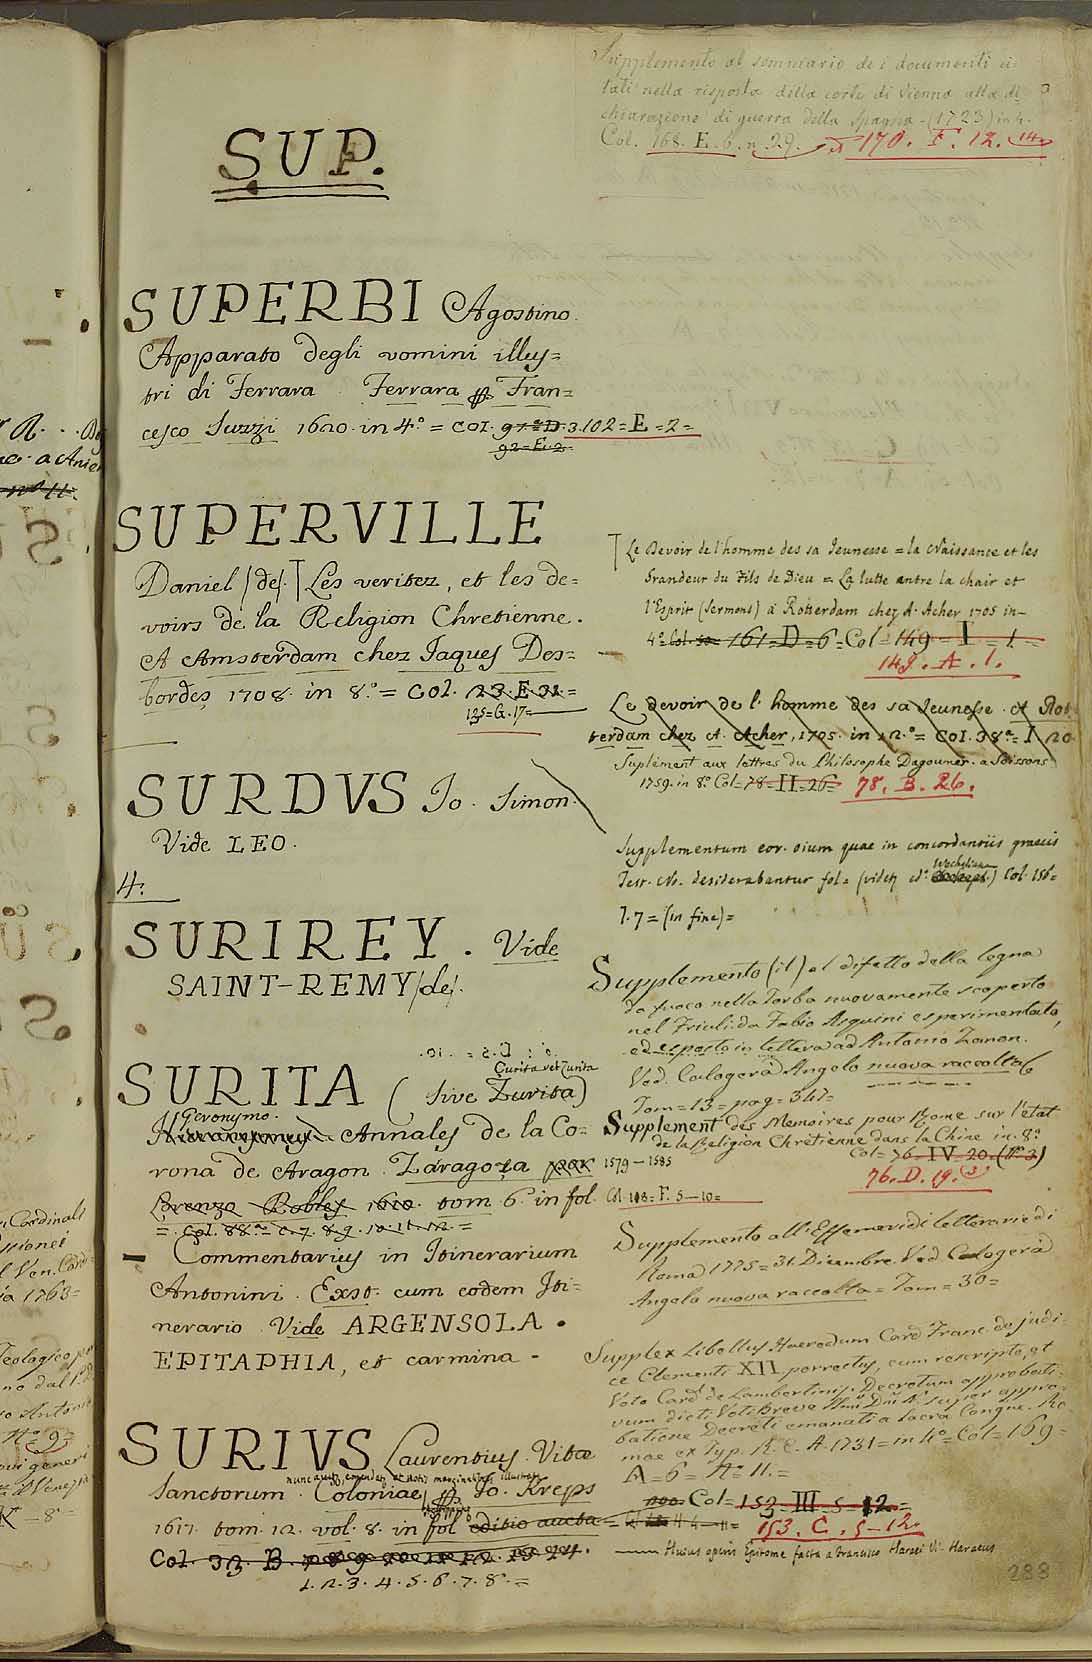 SUP.
SUPERBI Agostino.
Apparato degli uomini illus=
tri di Ferrara. Ferrara Fran=
cesco Suzzi 1620. in 4.° = Col. 97=D.3. 102=E=2=
92=E.2.
SUPERVILLE
Daniel /de/. Les veritez, et les de=
voirs de la Religion Chretienne.
A Amsterdam chez Jaques Des=
bordes 1708. in 8.° = Col. 23. E. 31=
125=G.17=
SURDVS Jo. Simon.
Vide LEO.
4:
SURIREY. Vide
SAINT-REMY /de/.
Çurita vel Zurita
SURITA ( sive Zurita)
Geronymo.
Annales de la Co=
rona de Aragon. Zaragoza 1579-1585
Lorenzo Robles 1610. tom. 6. in fol. Col. 108=F. 5-10=
= Col. 88. C. 7. 8. 9. 10. 11. 12. =
Commentarius in Itinerarium
Antonini. Exst. cum eodem Iti=
nerario. Vide ARGENSOLA.
EPITAPHIA, et carmina.
SURIVS Laurentius. Vitæ
nunc auct. emendat. et notis marginalibus illustrat.
Sanctorum. Coloniae Jo. Kreps
1617. tom. 12. vol. 8. in fol editio aucta=
Col. 32. B. 7 8 9 10 11 12 13 14.
1. 2. 3. 4. 5. 6. 7. 8. =
Supplemento al sommario de i documenti ci=
tati nella risposta della corte di Vienna alla di=
chiarazione di guerra della Spagna. (1723) in 4.
Col. 168. E. 6. n. 29. 170. F. 12. 14
Le Devoir de l'homme des sa Jeunesse = la Naissance et les
Grandeur du Fils de Dieu = La lutte entre la chair et
l'Esprit (Sermons) à Rotterdam chez A. Acher 1705 in-
4° Col. 161=D=6=Col=149=I=1.
149. A. 1.
Le devoir de l'homme des sa Jeunesse. A Rot=
terdam chez A. Acher, 1705. in 12.° = Col. 38.=I, 20
Suplément aux lettres du Philosophe Dagoumer. a Soissons
1759. in 8.° Col=78=II=26= 78. B. 26.
Supplementum eor. oium quae in concordantiis graecis
Test. N. desiderabantur fol= (videz ed. Wecheliana) Col. 156=
I. 7 = (in fine)=
Supplemento (il) al difetto della legna
da fuoco nella Torba nuovamente scoperto
nel Friuli da Fabio Asquini esperimentato,
ed esposto in lettera ad Antonio Zanon.
Ved. Calogerà Angelo nuova raccolta
Tom=13=pag=347=
Supplement des Memoires pour Rome sur l'état
de la Religion Chrétienne dans la Chine in. 8.°
Col= 76=IV=20. (N.° 3)
76. D. 19. (3)
Supplemento all'Effemeridi letterarie di
Roma 1775=31. Dicembre. Ved. Calogerà
Angelo nuova raccolta=Tom=30=
Supplex Libellus Haeredum Card. Franc. de judi=
ce Clementi XII porrectus, cum rescripto, et
Voto Card. de Lambertinis. Decretum approbati=
vum dicti Voti Breve SSmi Dni N. super appro=
batione Decreti emanati a Sacra Congne. Ro=
mae ex Typ. R. C. A. 1731=in 4.°=Col=169=
A=6=N.° 11.=
Col= 153=III=5=12=
153. C. 5-12.
Huius operis Epitome facta a Francisco Haraei V. Haraeus
288